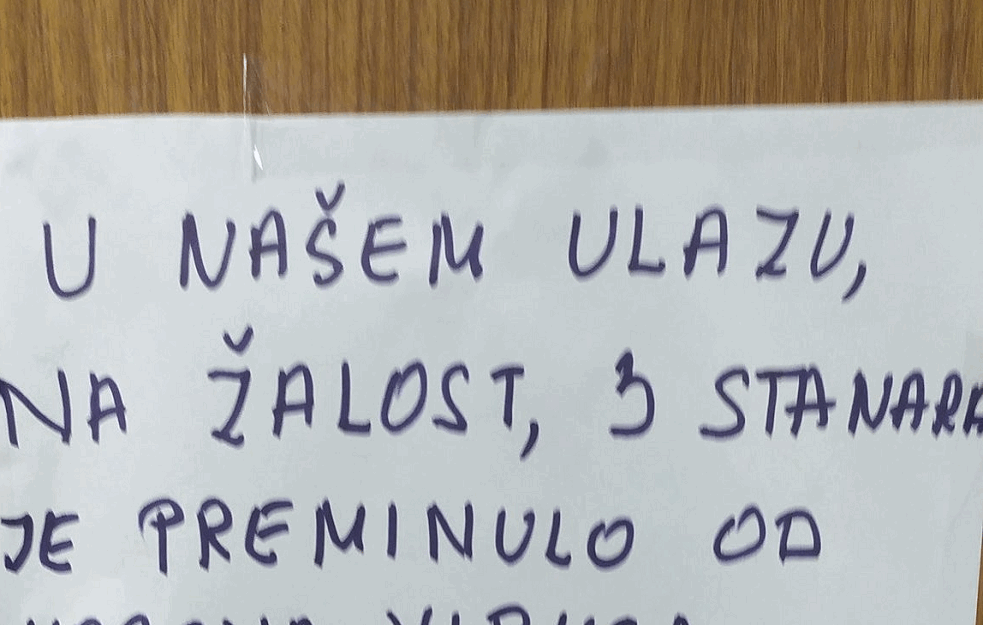 U NAŠEM ULAZU,
NA ŽALOST, 3 STANARA
JE PREMINULO OD